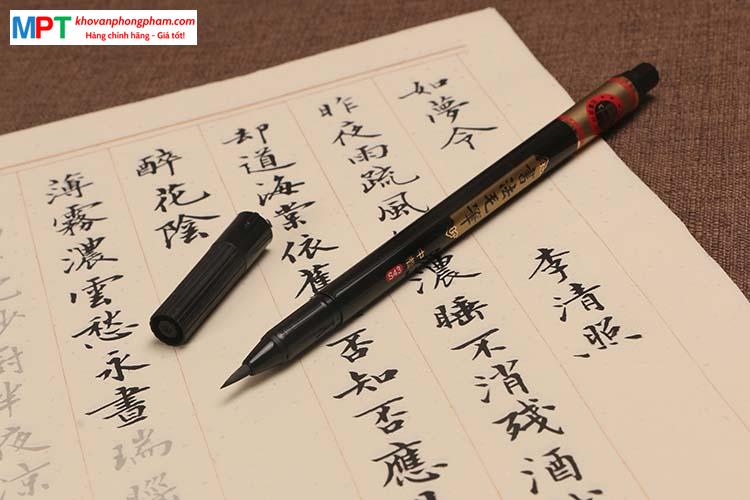 MPT
khovanphongpham.com
Hàng chính hãng - Giá tốt!
如夢令 李清照
昨夜雨疏風 濃睡不消殘酒
却道海棠依舊 否知否應
醉花陰
薄霧濃雲愁永晝 瑞腦
厨半夜凉
書法毛筆
S43